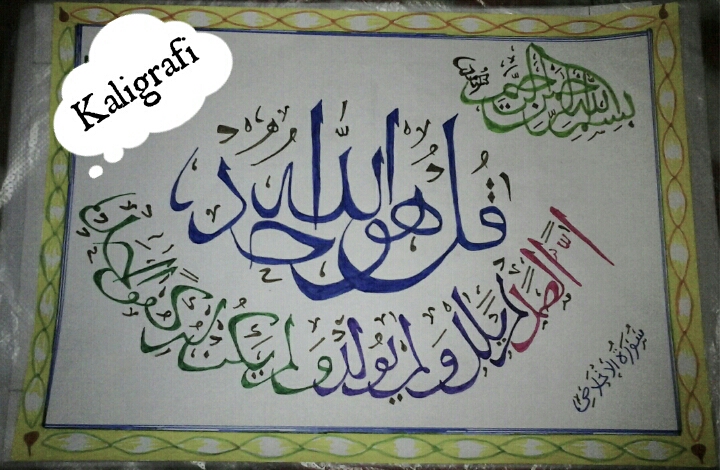 Kaligrafi
بسم الله الرحمن الرحيم
قل هو الله احد
الله الصمد لم يلد ولم يولد ولم يكن له كفوا احد
سورة الإخلاص